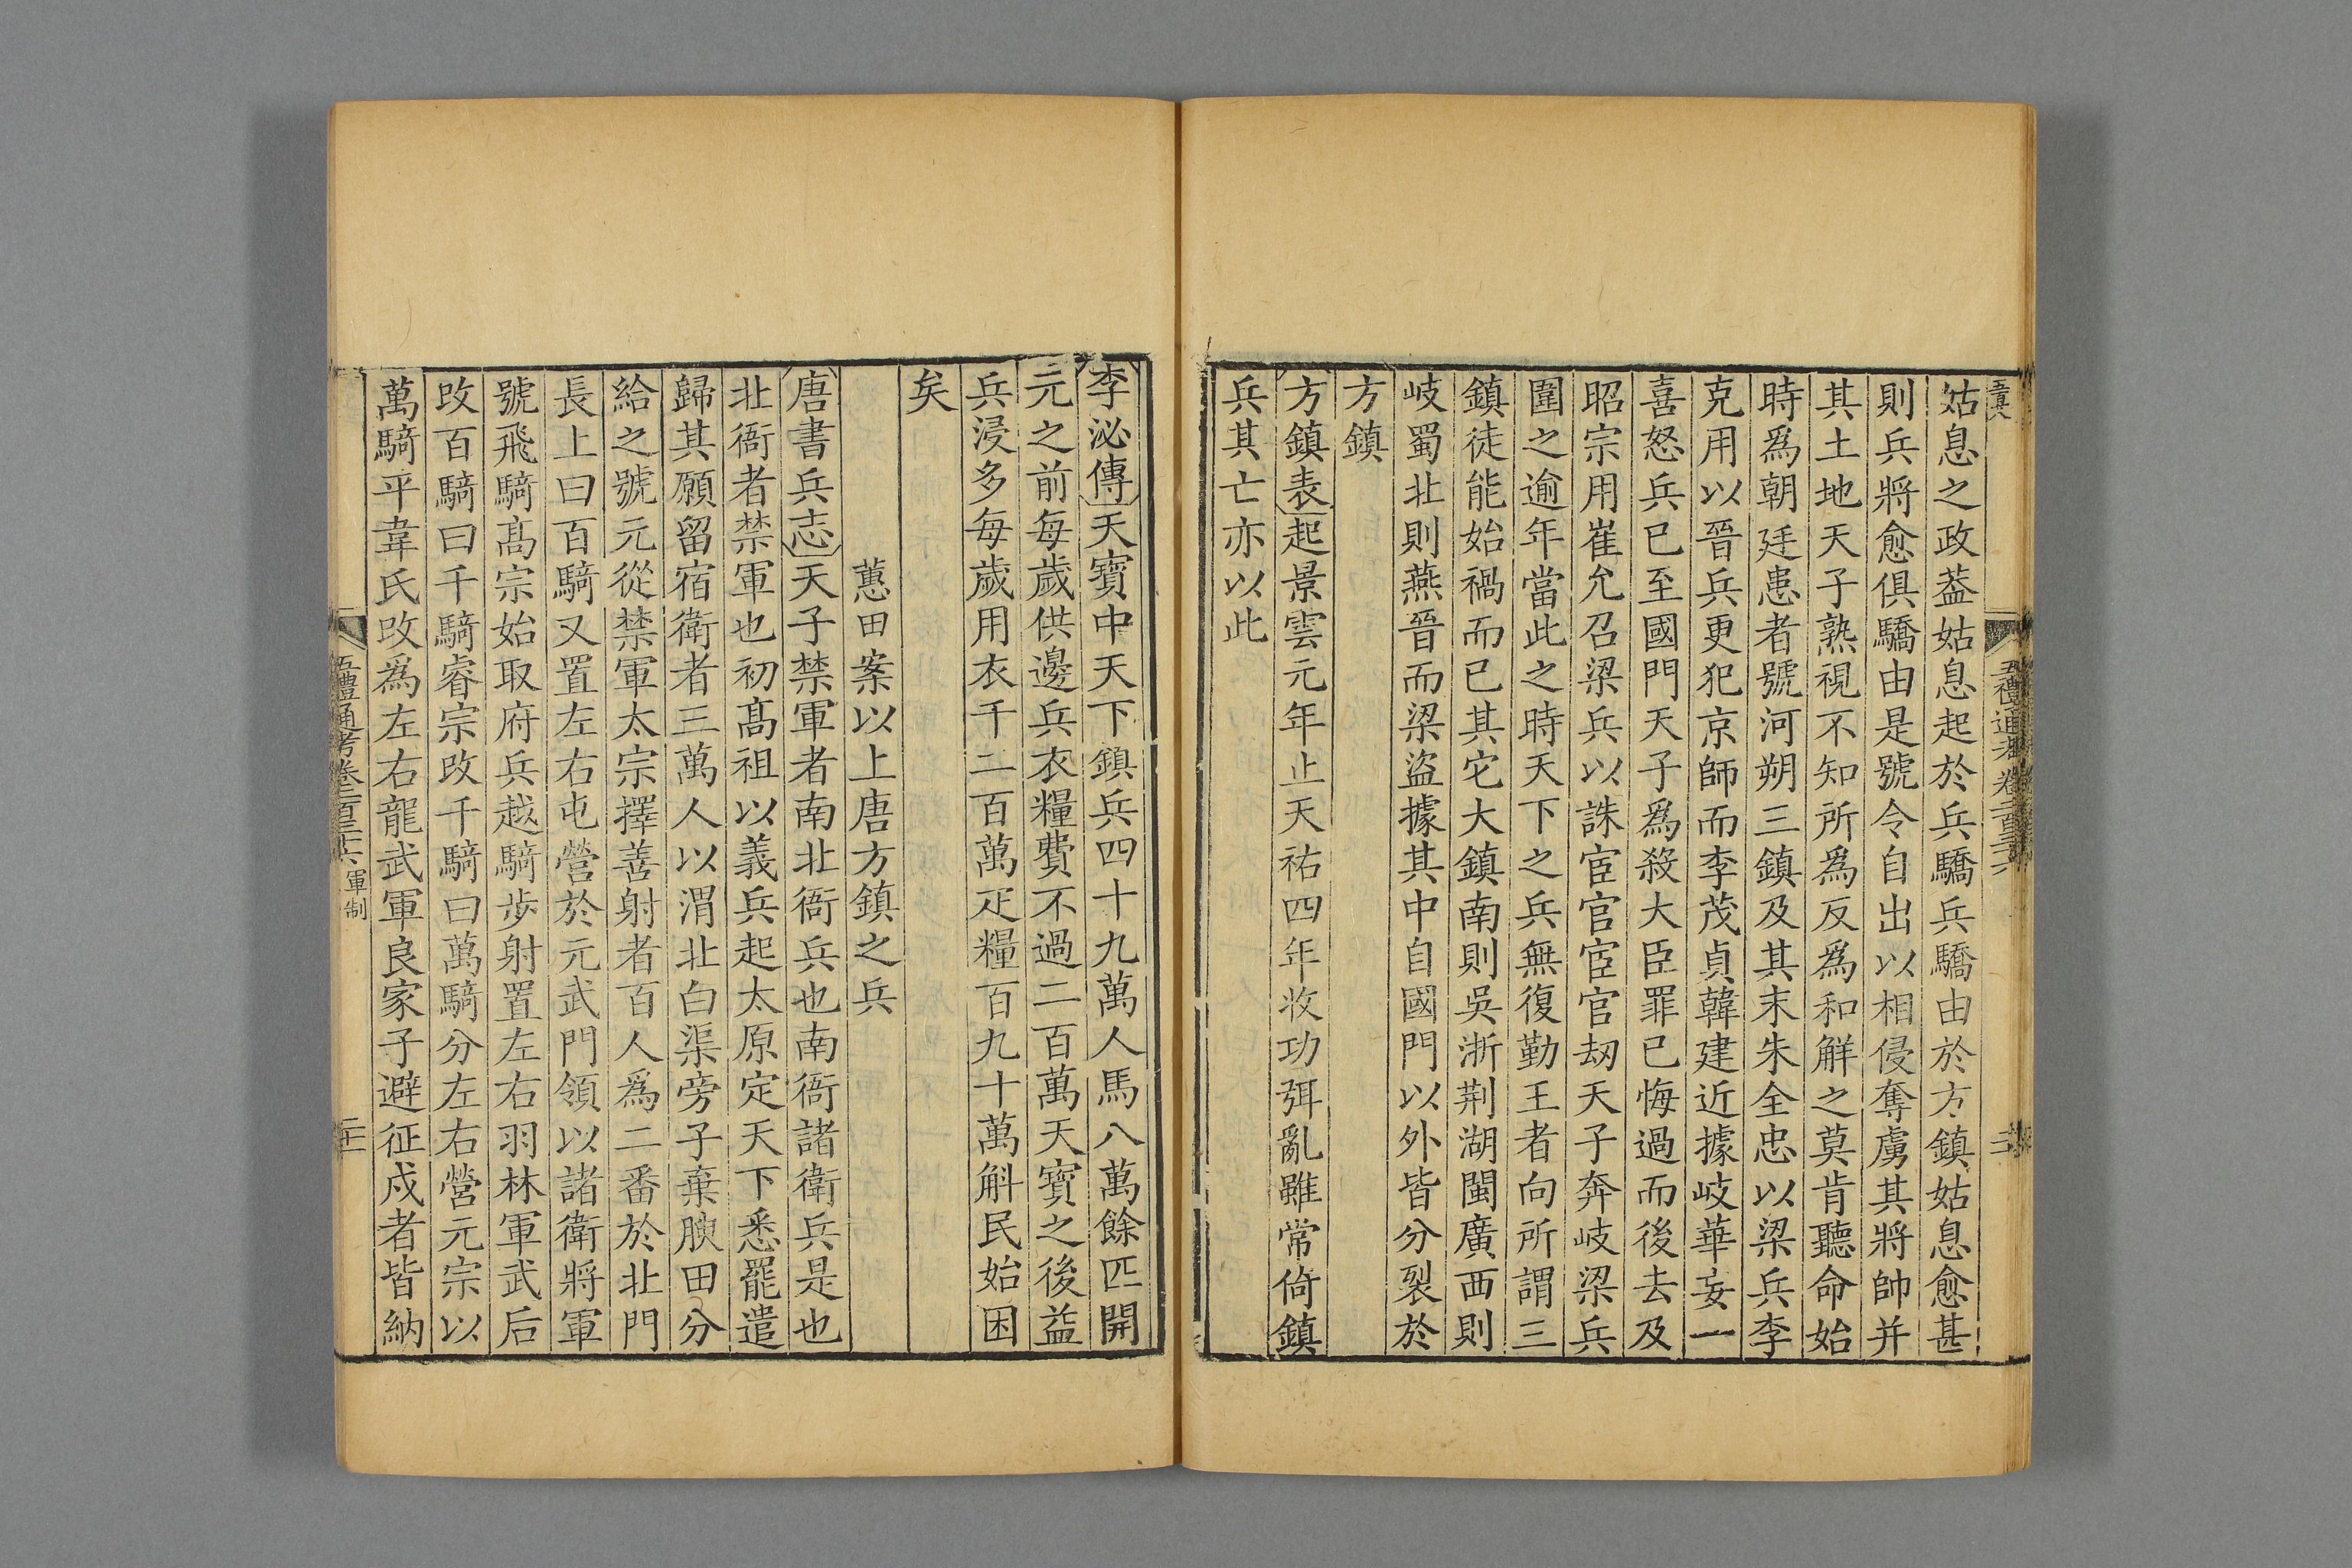 姑息之政葢姑息起於兵驕兵驕由於方鎮姑息愈甚
則兵將愈俱驕由是號令自出以相侵奪虜其將帥并
其土地天子熟視不知所爲反爲和解之莫肯聽命始
時爲朝廷患者號河朔三鎮及其末朱全忠以梁兵李
克用以晉兵更犯京師而李茂貞韓建近據岐華妄一
喜怒兵已至國門天子爲殺大臣罪已悔過而後去及
昭宗用崔允召梁兵以誅宦官宦官刼天子奔岐梁兵
圍之逾年當此之時天下之兵無復勤王者向所謂三
鎮徒能始禍而已其它大鎮南則吳浙荆湖閩廣西則
岐蜀北則燕晉而梁盜據其中自國門以外皆分裂於
方鎮
方鎮表起景雲元年止天祐四年收功弭亂雖常倚鎮
兵其亡亦以此
李泌傳天寶中天下鎮兵四十九萬人馬八萬餘匹開
元之前每歲供邊兵衣糧費不過二百萬天寶之後益
兵浸多每歲用衣千二百萬疋糧百九十萬斛民始困
矣
蕙田案以上唐方鎮之兵
唐書兵志天子禁軍者南北衙兵也南衙諸衛兵是也
北衙者禁軍也初髙祖以義兵起太原定天下悉罷遣
歸其願留宿衛者三萬人以渭北白渠旁子棄腴田分
給之號元從禁軍太宗擇善射者百人爲二番於北門
長上曰百騎又置左右屯營於元武門領以諸衛將軍
號飛騎髙宗始取府兵越騎步射置左右羽林軍武后
改百騎曰千騎睿宗改千騎曰萬騎分左右營元宗以
萬騎平韋氏改爲左右龍武軍良家子避征戍者皆納
五禮通考卷二百三十六 軍制